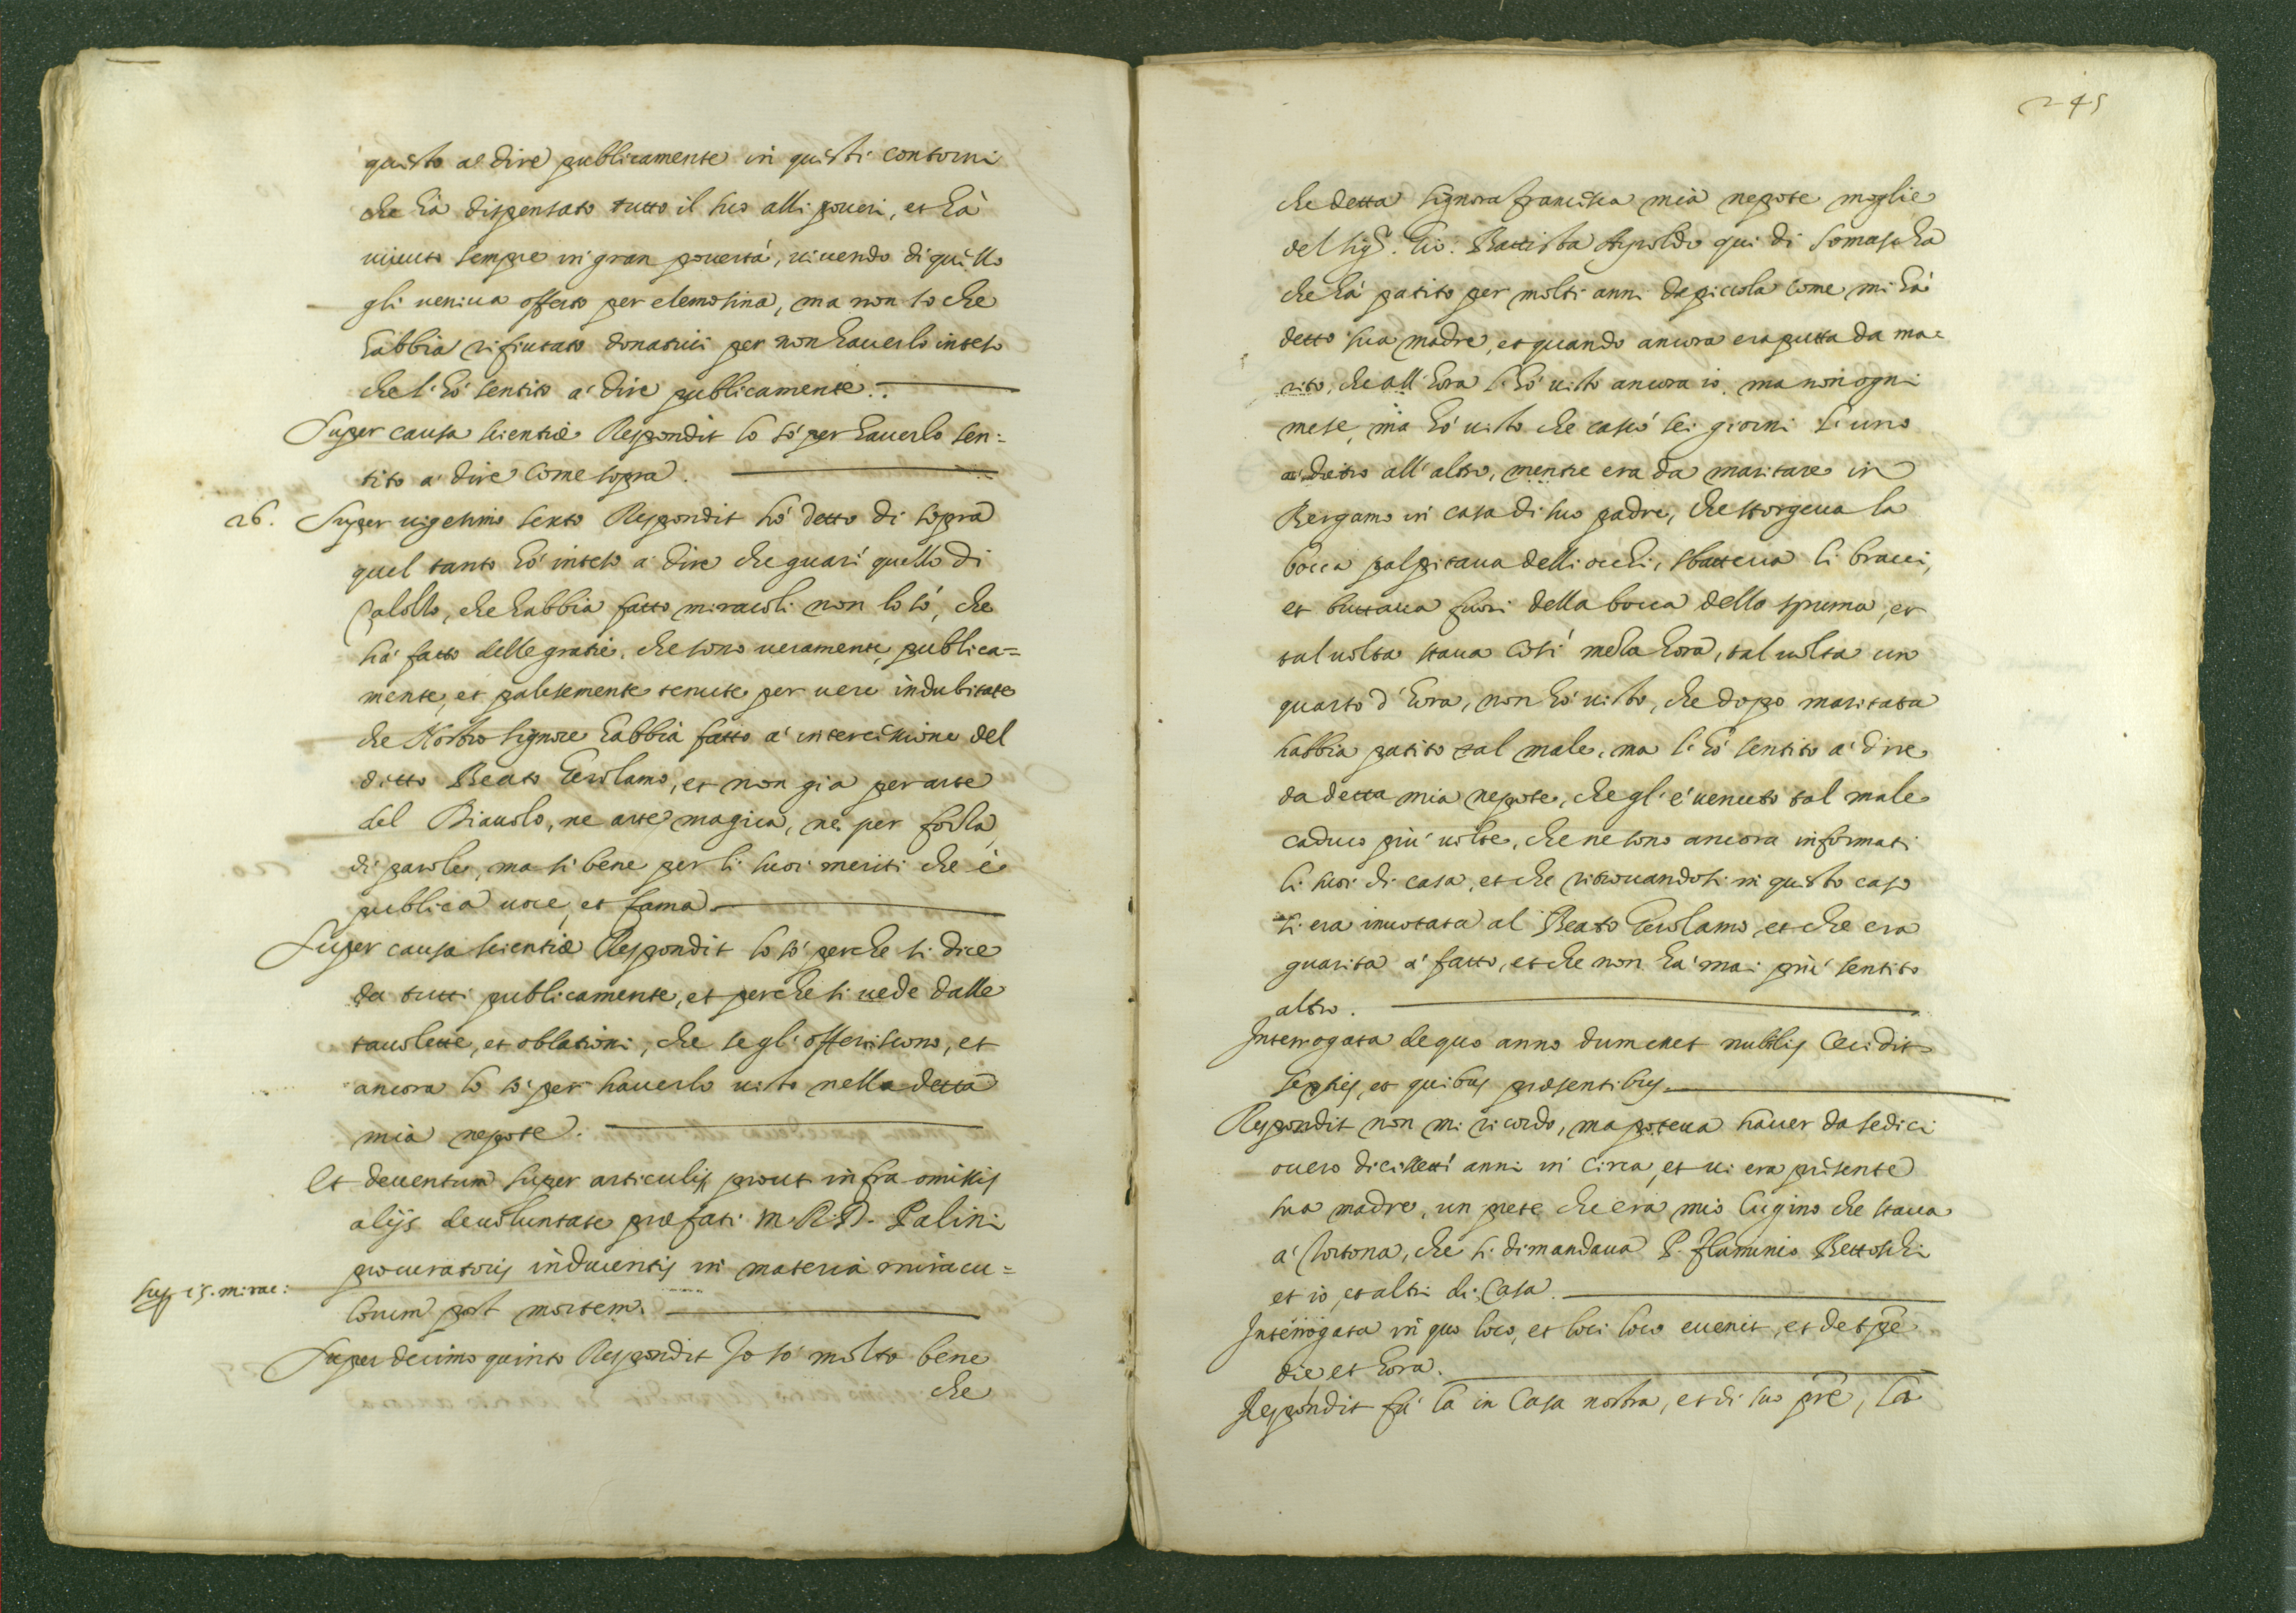 questo a dire publicamente in questi contorni
che hà dispensato tutto il suo alli poueri, et hà
uiuuto sempre in gran pouertà, uiuendo di quello
gli ueniua offerto per elemosina, ma non so che
habbia rifiutato donatiui per non hauerlo inteso
che l'hò sentito a dire publicamente.
Super causa scientiæ Respondit lo sò per hauerlo sen=
tito a dire come sopra.
26. Super uigesimo sexto Respondit hò detto di sopra
quel tanto hò inteso a dire che guarì quello di
Calolto, che habbia fatto miracoli non lo sò, che
hà fatto delle gratie, che sono ueramente, publica=
mente, et palesemente tenute per uere indubitate
che Nostro Signore habbia fatto a intercessione del
ditto Beato Gerolamo, et non gia per arte
del Diauolo, ne arte magica, ne per forza
di parole, ma si bene per li suoi meriti che è
publica uoce, et fama.
Super causa scientiæ Respondit lo sò perche si dice
da tutti publicamente, et perche si uede dalle
tauolette, et oblationi, che se gl'offeriscono, et
ancora lo sò per hauerlo uisto nella detta
mia nepote.
Et deuentum super articulis prout infra omissis
alijs de uoluntate præfati M. R. D. Palini
procuratoris inducentis in materia miracu=
Sup. 15. mirac:
lorum post mortem.
Super decimo quinto Respondit Io sò molto bene
che
245
che detta Signora Francesca mia nepote moglie
del Sig.r Gio: Battista Airoldo qui di Somascha
che hà patito per molti anni da piccola come mi hà
detto sua madre, et quando ancora era putta da ma=
rito, che all'hora l'hò uisto ancora io, ma non ogni
mese, ma hò uisto che cascò sei giorni l'uno
a dietro all'altro, mentre era da maritare in
Bergamo in casa di suo padre, che storgeua la
bocca palpitaua delli occhi, sbatteua li bracci,
et buttaua fuori della bocca dello spuma, et
tal uolta staua così meza hora, tal uolta un
quarto d'hora, non hò uisto, che dopo maritata
habbia patito tal male, ma l'hò sentito a dire
da detta mia nepote, che gl'è uenuto tal male
caduco più uolte, che ne sono ancora informati
li suoi di casa, et che ritrouandosi in questo caso
si era inuotata al Beato Gerolamo, et che era
guarita a fatto, et che non hà mai più sentito
altro.
Interrogata de quo anno dum esset nubilis Cecidit
sepius, et quibus præsentibus.
Respondit non mi ricordo, ma poteua hauer da sedici
ouero dicisetti anni in circa, et ui era presente
sua madre, un prete che era mio Cugino che staua
a Cortona, che si dimandaua P. Flaminio
et io, et altri di Casa.
Interrogata in quo loco, et loci loco euenit, et de tpe
die et hora.
Respondit fù là in Casa nostra, et di suo pre, là